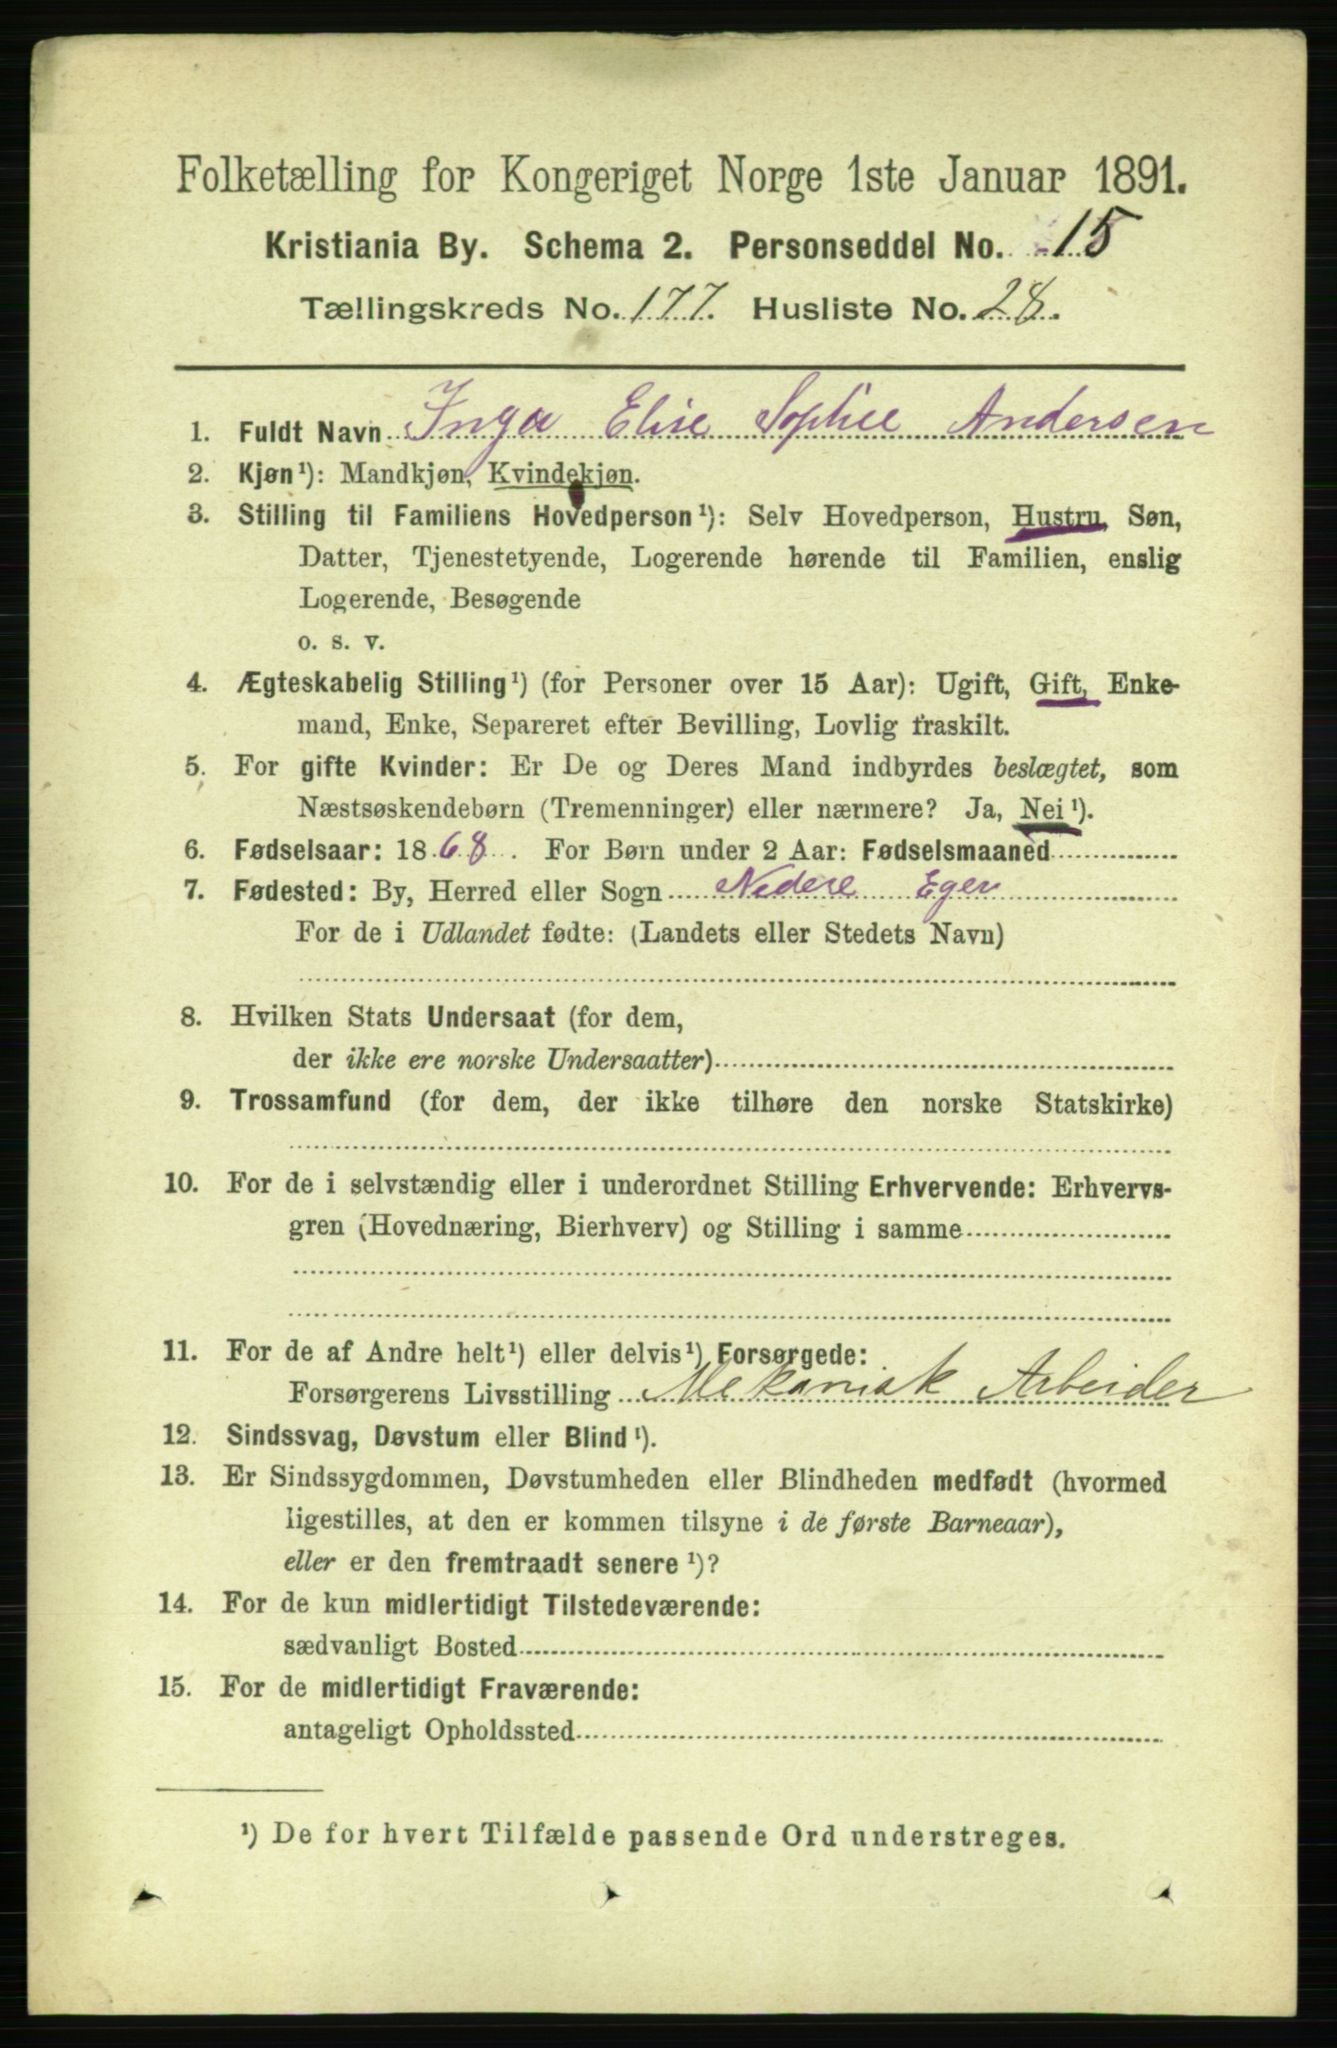 Folketælling for Kongeriget Norge 1ste Januar 1891.
Kristiania By. Schema 2. Personseddel No. 15
Tællingskreds No. 177. Husliste No. 28.
1. Fuldt Navn Inga Elise Sophie Andersen
2. Kjøn¹): Mandkjøn, Kvindekjøn.
3. Stilling til Familiens Hovedperson¹): Selv Hovedperson, Hustru, Søn,
Datter, Tjenestetyende, Logerende hørende til Familien, enslig
Logerende, Besøgende
o. s. v.
4. Ægteskabelig Stilling¹) (for Personer over 15 Aar): Ugift, Gift, Enke-
mand, Enke, Separeret efter Bevilling, Lovlig fraskilt.
5. For gifte Kvinder: Er De og Deres Mand indbyrdes beslægtet, som
Næstsøskendebørn (Tremenninger) eller nærmere? Ja, Nei¹).
6. Fødselsaar: 1868. For Børn under 2 Aar: Fødselsmaaned
7. Fødested: By, Herred eller Sogn Nedre Eger
For de i Udlandet fødte: (Landets eller Stedets Navn)
8. Hvilken Stats Undersaat (for dem,
der ikke ere norske Undersaatter)
9. Trossamfund (for dem, der ikke tilhøre den norske Statskirke)
10. For de i selvstændig eller i underordnet Stilling Erhvervende: Erhvervs-
gren (Hovednæring, Bierhverv) og Stilling i samme
11. For de af Andre helt¹) eller delvis¹) Forsørgede:
Forsørgerens Livsstilling Mekanisk Arbeider
12. Sindssvag, Døvstum eller Blind¹).
13. Er Sindssygdommen, Døvstumheden eller Blindheden medfødt (hvormed
ligestilles, at den er kommen tilsyne i de første Barneaar),
eller er den fremtraadt senere¹)?
14. For de kun midlertidigt Tilstedeværende:
sædvanligt Bosted
15. For de midlertidigt Fraværende:
antageligt Opholdssted
¹) De for hvert Tilfælde passende Ord understreges.